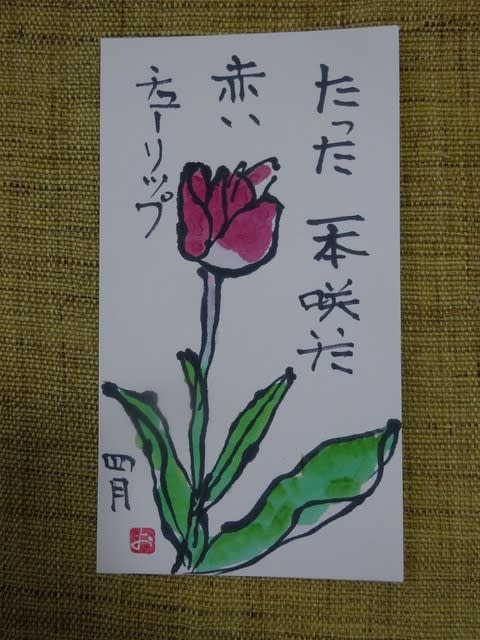 たった一本咲いた
赤い
チューリップ
四月
お